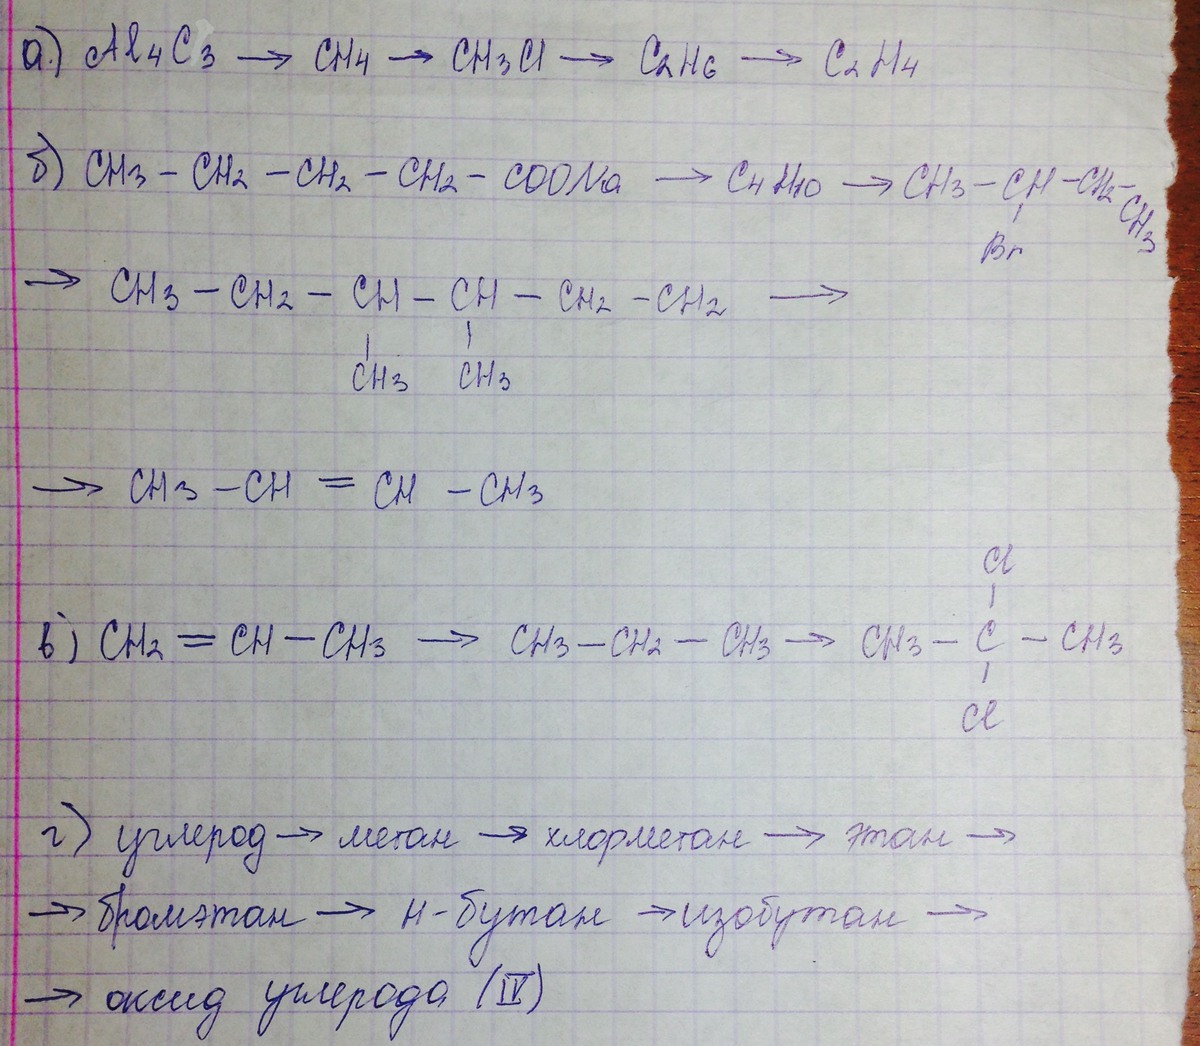 а) Al4C3 → CH4 → CH3Cl → C2H6 → C2H4
б) CH3 – CH2 – CH2 – CH2 – COONa → C4H10 → CH3 – CH – CH2 – CH3
Br
→ CH3 – CH2 – CH – CH – CH2 – CH2 →
CH3 CH3
→ CH3 – CH = CH – CH3
Cl
в) CH2 = CH – CH3 → CH3 – CH2 – CH3 → CH3 – C – CH3
Cl
г) углерод → метан → хлорметан → этан →
→ бромэтан → н-бутан → изобутан →
→ оксид углерода (IV)